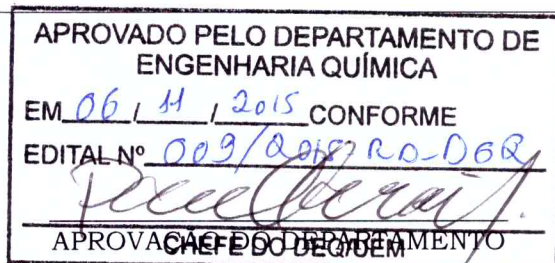 APROVADO PELO DEPARTAMENTO DE
ENGENHARIA QUÍMICA
EM 06 / 11 / 2015 CONFORME
EDITAL Nº 009/ RD-DEQ
APROVAÇÃO DO DEPARTAMENTO
CHEFE DO DEQ/UEM